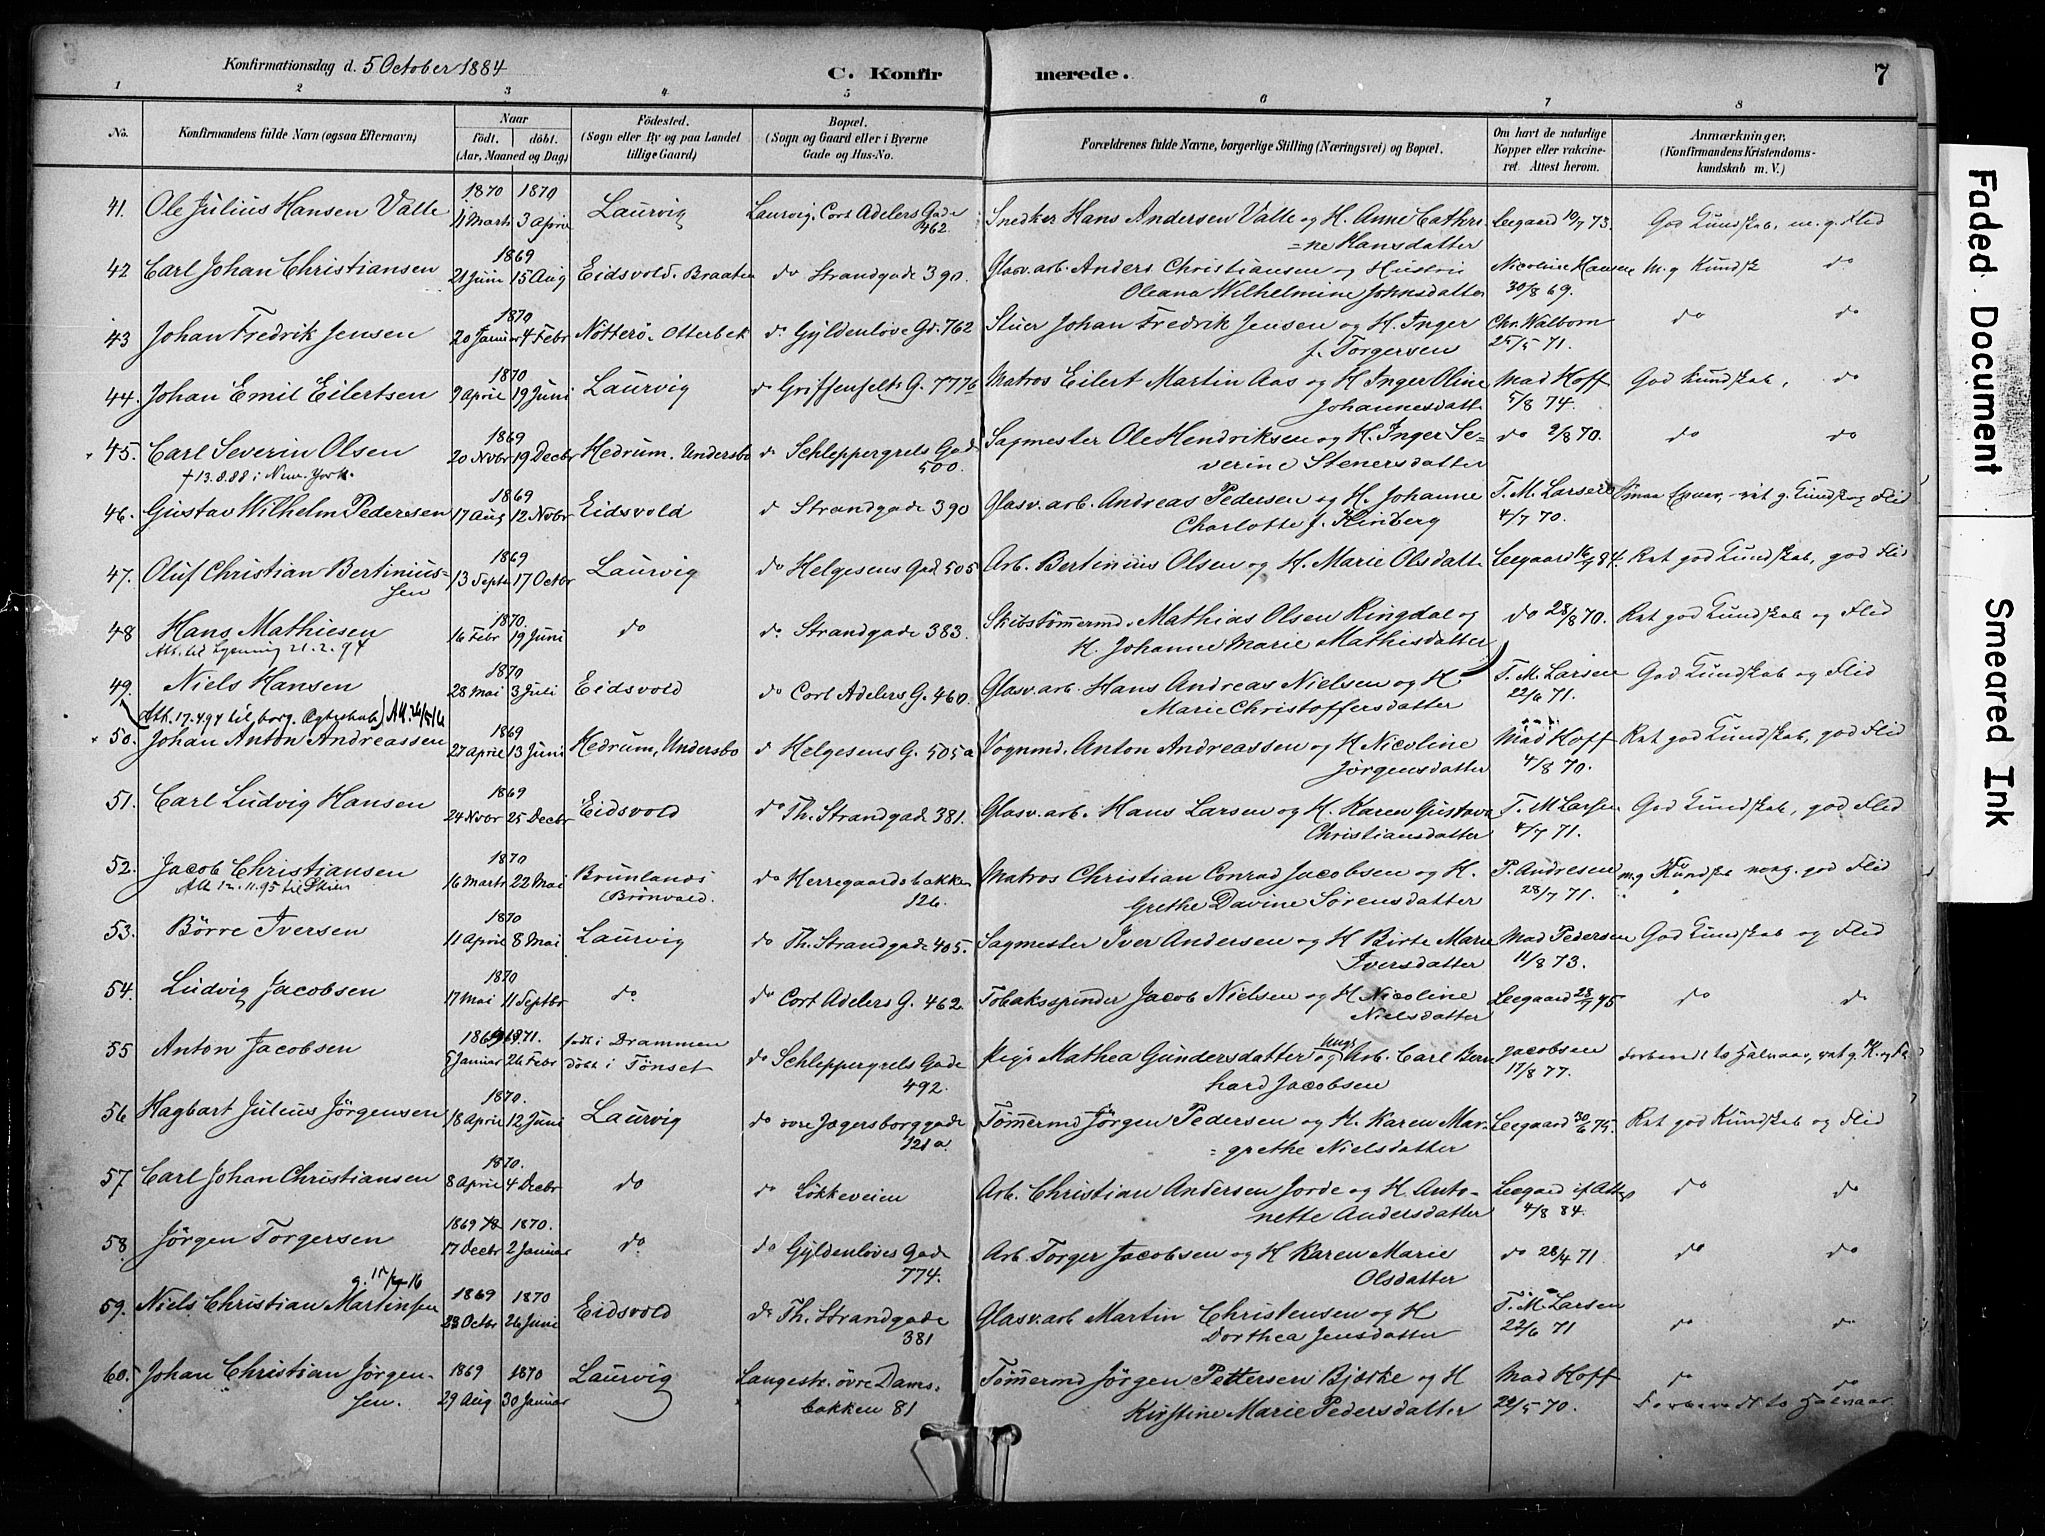 Konfirmationsdag d. 5 October 1884
C. Konfirmerede.
7
1 2 3 4 5 6 7 8
No.
Konfirmandens fulde Navn (ogsaa Efternavn)
Naar
Født. døbt.
(Aar, Maaned og Dag)
Fødested.
(Sogn eller By og paa Landet
tillige Gaard)
Bopæl.
(Sogn og Gaard eller i Byerne
Gade og Hus-No.
Forældrenes fulde Navne, borgerlige Stilling (Næringsvei) og Bopæl.
Om havt de naturlige
Kopper eller vakcine-
ret. Attest herom.
Anmærkninger.
(Konfirmandens Kristendoms-
kundskab m. V.)
1870 1870
41. Ole Julius Hansen Valle 11 Marts 3 April Laurvig Laurvig, Cort Adelers Gade Snedker Hans Andersen Valle og H. Anne Cathri Leegaard 10/7 73. God Kundskab, m. g. Flid
462. =ne Hansdatter
1869
42 Carl Johan Christiansen 21 Juni 15 Aug Eidsvold. Braaten do Strandgade 390. Glasv. arb. Anders Christiansen og Hustru Nicoline Hansen m. g Kundsk do
Oleana Wilhelmine Johnsdatter 30/8 69.
1870
43 Johan Fredrik Jensen 20 Januar 4 Febr Nötterö. Otterbek do Gyldenlöve Gd. 762 Stuer Johan Fredrik Jensen og H. Inger Chr. Walbom do do
f. Torgersen 25/5 71.
1870
44. Johan Emil Eilertsen 9 April 19 Juni Laurvig do Griffenfelts G. 777b Matros Eilert Martin Aas og H Inger Oline Mad Hoff God Kundskab, do
Johannesdatte 5/8 74.
1869
45. Carl Severin Olsen 20 Nvbr 19 Decbr Hedrum. Undersbo do Schleppergrels Gad Sagmester Ole Hendriksen og H. Inger Se= do 9/8 70. do do
+ 13.8.88 i New-York. 500. verine Stenersdatter
1869
46. Gustav Wilhelm Pedersen 17 Aug 12 Novbr Eidsvold d Strandgade 390 Glasv. arb. Andreas Pedersen og H. Johanne T. M. Larsen
Charlotte f. 4/7 70.
1869
47. Oluf Christian Bertinius= 13 Septr 17 Octbr Laurvig do Helgesens Gad 505 Arb. Bertinius Olsen og H. Marie Olsdatte Leegaard Ret god Kundskab, god Flid
sen
1870.
48 Hans Mathiesen 16 Febr 19 Juni do do Strandgade 383. Skibstömermd. Mathias Olsen Ringdal og do 28/8 70. Ret god Kundskab og Flid
Att. til Lysning 21.2.94 H. Johanne Marie Mathisdatter
1870
49. Niels Hansen 28 Mai 3 Juli Eidsvold do Cort Adelers G. 460. Glasv. arb. Hans Andreas Nielsen og H. T. M. Larsen God Kundskab og Flid
Att. 17.4.94 til borg. Ægteskab Marie Christoffersdatter 22/6 71.
1869
50. Johan Anton Andreassen 27 April 13 Juni Hedrum, Undersbo d Helgesens G. 505 a Vognmd. Anton Andreassen og H Nicoline Mad Hoff Ret god Kundskab, god Flid
Jörgensdatter 4/8 70.
1869
51. Carl Ludvig Hansen 24 Nvbr 25 Decbr Eidsvold do Th. Strandgade 381. Glasv. arb. Hans Larsen og H. Karen Gustava T. M Larsen God Kundskab, god Flid
Christiansdatter 4/7 71.
1870
52. Jacob Christiansen 16 Marts 22 Mai Brunlands do Herregaardsbakken Matros Christian Conrad Jacobsen og H. P. Andresen m. g Kundskab god Flid
til Skien Brönvold. 126. Grethe Davine Sörensdatter 28/7 71.
1870
53. Börre Iversen 11 April 8 Mai Laurvig do Th. Strandgade 405. Sagmester Iver Andersen og H Birte Marie Mad Pedersen God Kundskab og Flid
Iversdatter 11/8 73.
1870
54. Ludvig Jacobsen 17 Mai 11 Septbr do do Cort Adelers G. 462 Tobaksspinder Jacob Nielsen og H. Nicoline Leegaard do do
Nielsdatter
1871.
55 Anton Jacobsen 5 Januar 26 Febr födt i Drammen do Schleppergrels Gade Pige Mathea Gundersdatter og Arb. Carl Bern Jacobsen
döbt i Tönset 492. hard Jacobsen 17/8 77.
1870.
56 Hagbart Julius Jörgensen 18 April 12 Juni Laurvig do övre Jægersborggade Tömermd Jörgen Pedersen og H. Karen Mar- Leegaard 30/6 75. Ret god Kundskab og Flid
121 a. = grethe Nielsdatter
1870.
57 Carl Johan Christiansen 8 April 4 Decbr do do Lökkeveien Arb. Christian Andersen Jorde og H. Anto- do do
nette Andersdatter 4/8 84.
1869 1870.
58. Jörgen Torgersen 17 Decbr 2 Januar do do Gyldenlöves Gad Arb. Torger Jacobsen og H Karen Marie do 28/4 71 do do
774. Olsdatter
1869 1870
59. Niels Christian Martinsen 23 Octbr 26 Juni Eidsvold do Th. Strandgade Glasv. arb Martin Christensen og H T. M. Larsen do do
381 Dorthea Jensdatter 22/6 71
1869 1870
60. Johan Christian Jörgen- 29 Aug 30 Januar Laurvig Langestr. övre Dams- Tömermd Jörgen Pettersen Bjerke og H Mad Hoff do do
sen. bakken 81 Kirstine Marie Pedersdatter 22/5 70.
Faded Document
Smeared Ink